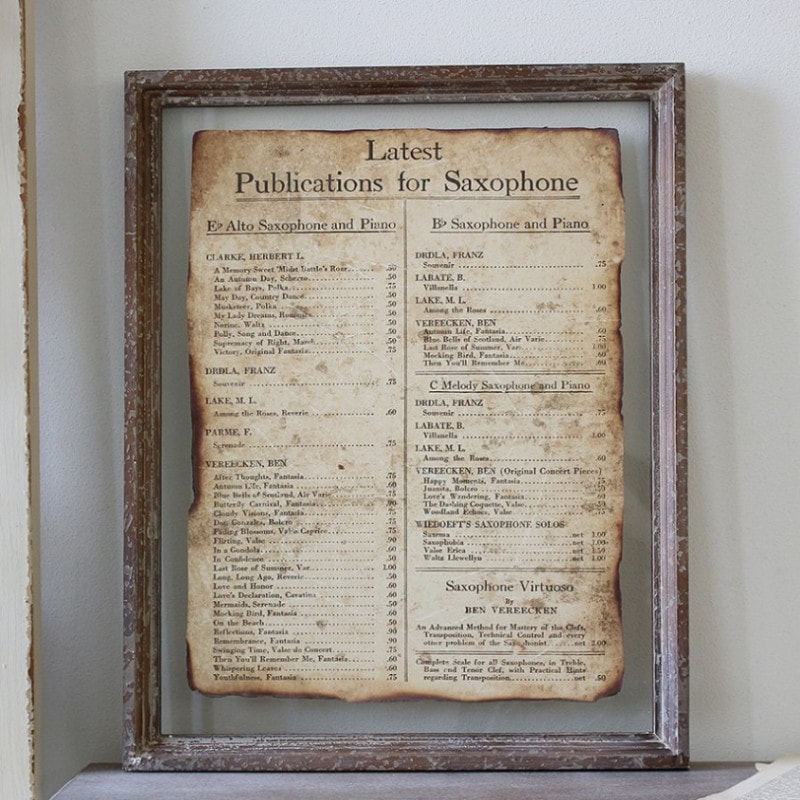 Latest
Publications for Saxophone
E♭ Alto Saxophone and Piano
CLARKE, HERBERT L.
A Memory Sweet 'Midst Battle's Roar .50
An Autumn Day, Scherzo .50
Lake of Bays, Polka .75
May Day, Country Dance .50
Musketeer, Polka .50
My Lady Dreams, .50
Norine, Waltz .50
Polly, Song and Dance .50
Supremacy of Right, March .50
Victory, Original Fantasia .75
DRDLA, FRANZ
Souvenir .75
LAKE, M. L.
Among the Roses, Reverie .60
PARME, F.
Serenade .75
VEREECKEN, BEN
After Thoughts, Fantasia .75
Autumn Life, Fantasia .60
Blue Bells of Scotland, Air Varie .75
Butterfly Carnival, Fantasia .90
Cloudy Visions, Fantasia .75
Don Gonzales, Bolero .75
Fading Blossoms, Valse Caprice .75
Flirting, Valse .90
In a Gondola .60
In Confidence .50
Last Rose of Summer, Var. 1.00
Long, Long Ago, Reverie .50
Love and Honor .60
Love's Declaration, Cavatina .60
Mermaids, Serenade .50
Mocking Bird, Fantasia .60
On the Beach .50
Reflections, Fantasia .90
Remembrance, Fantasia .90
Swinging Time, Valse de Concert .75
Then You'll Remember Me, Fantasia .60
Whispering Leaves .60
Youthfulness, Fantasia .75
B♭ Saxophone and Piano
DRDLA, FRANZ
Souvenir .75
LABATE, B.
Villanella 1.00
LAKE, M. L.
Among the Roses .60
VEREECKEN, BEN
Autumn Life, Fantasia .60
Blue Bells of Scotland, Air Varie .75
Last Rose of Summer, Var. 1.00
Mocking Bird, Fantasia .60
Then You'll Remember Me .60
C Melody Saxophone and Piano
DRDLA, FRANZ
Souvenir .75
LABATE, B.
Villanella 1.00
LAKE, M. L.
Among the Roses .60
VEREECKEN, BEN (Original Concert Pieces)
Happy Moments, Fantasia .75
Juanita, Bolero
Love's Wandering, Fantasia .60
The Dashing Coquette, Valse .50
Woodland Echoes, Valse .75
WIEDOEFT'S SAXOPHONE SOLOS
Saxema net 1.00
Saxophobia net 1.00
Valse Erica net 1.50
Waltz Llewellyn net 1.00
Saxophone Virtuoso
By
BEN VEREECKEN
An Advanced Method for Mastery of the Clefs,
Transposition, Technical Control and every
other problem of the Saxophonist net 2.00
Complete Scale for all Saxophones, in Treble,
Bass and Tenor Clef, with Practical Hints
regarding Transposition net .50